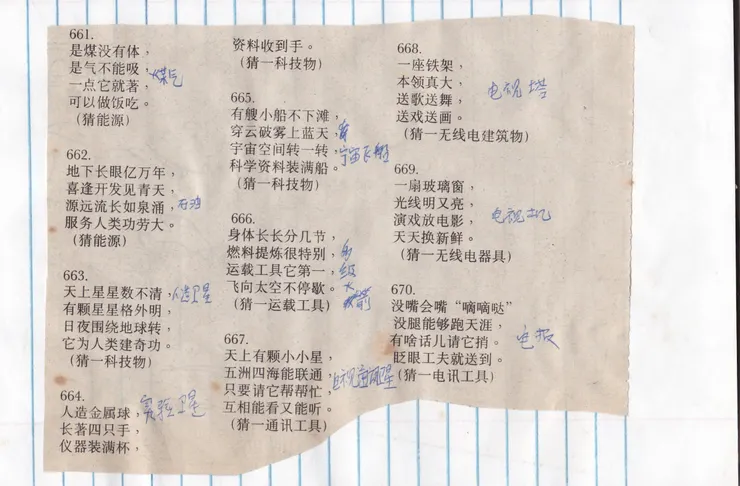 661.
是煤没有体，
是气不能吸，
一点它就著，
可以做饭吃。
(猜能源)
煤气
662.
地下长眠亿万年，
喜逢开发见青天，
源远流长如泉涌，
服务人类功劳大。
(猜能源)
石油
663.
天上星星数不清，
有颗星星格外明，
日夜围绕地球转，
它为人类建奇功。
(猜一科技物)
人造卫星
664.
人造金属球，
长著四只手，
仪器装满杯，
实验卫星
资料收到手。
(猜一科技物)
665.
有艘小船不下滩，
穿云破雾上蓝天，
宇宙空间转一转，
科学资料装满船。
(猜一科技物)
宇宙飞船
666.
身体长长分几节，
燃料提炼很特别，
运载工具它第一，
飞向太空不停歇。
(猜一运载工具)
多
级
火
箭
667.
天上有颗小小星，
五洲四海能联通，
只要请它帮帮忙，
互相能看又能听。
(猜一通讯工具)
668.
一座铁架，
本领真大，
送歌送舞，
送戏送画。
(猜一无线电建筑物)
电视塔
669.
一扇玻璃窗，
光线明又亮，
演戏放电影，
天天换新鲜。
(猜一无线电器具)
电视机
670.
没嘴会嘴“嘀嘀哒”
没腿能够跑天涯，
有啥话儿请它捎。
眨眼工夫就送到。
(猜一电讯工具)
电报